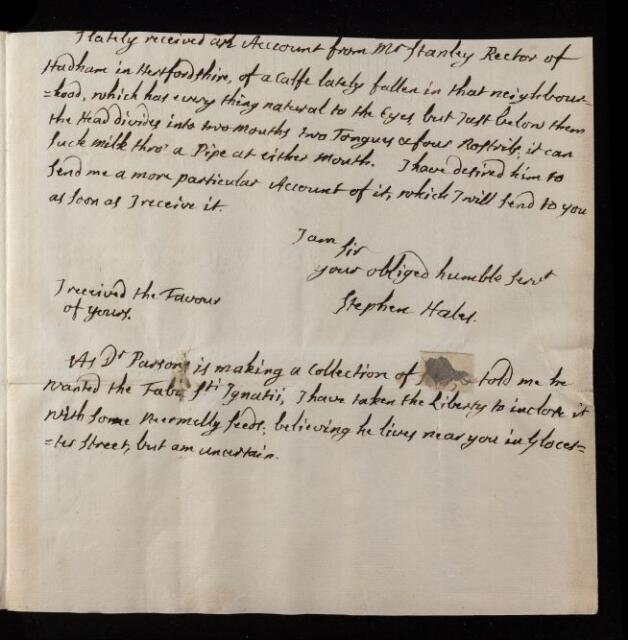 I lately received an Account from Mr Stanley Rector of
Hadham in Hertfordshire, of a Calfe lately fallen in that neighbour=
=hood, which has every thing natural to the Eyes, but Just below them
the Head divides into two mouths two Tongues & four Nostrils, it can
suck milk thro' a Pipe at either mouth. I have desired him to
send me a more particular Account of it, which I will send to you
as soon as I receive it.
I am
Sir
your obliged humble Servt
Stephen Hales.
I received the Favour
of yours.
As Dr Parsons is making a Collection of told me he
wanted the Faba Sti Ignatii, I have taken the Liberty to inclose it
with some Seeds, believing he lives near you in Gloces=
=ter Street, but am uncertain.